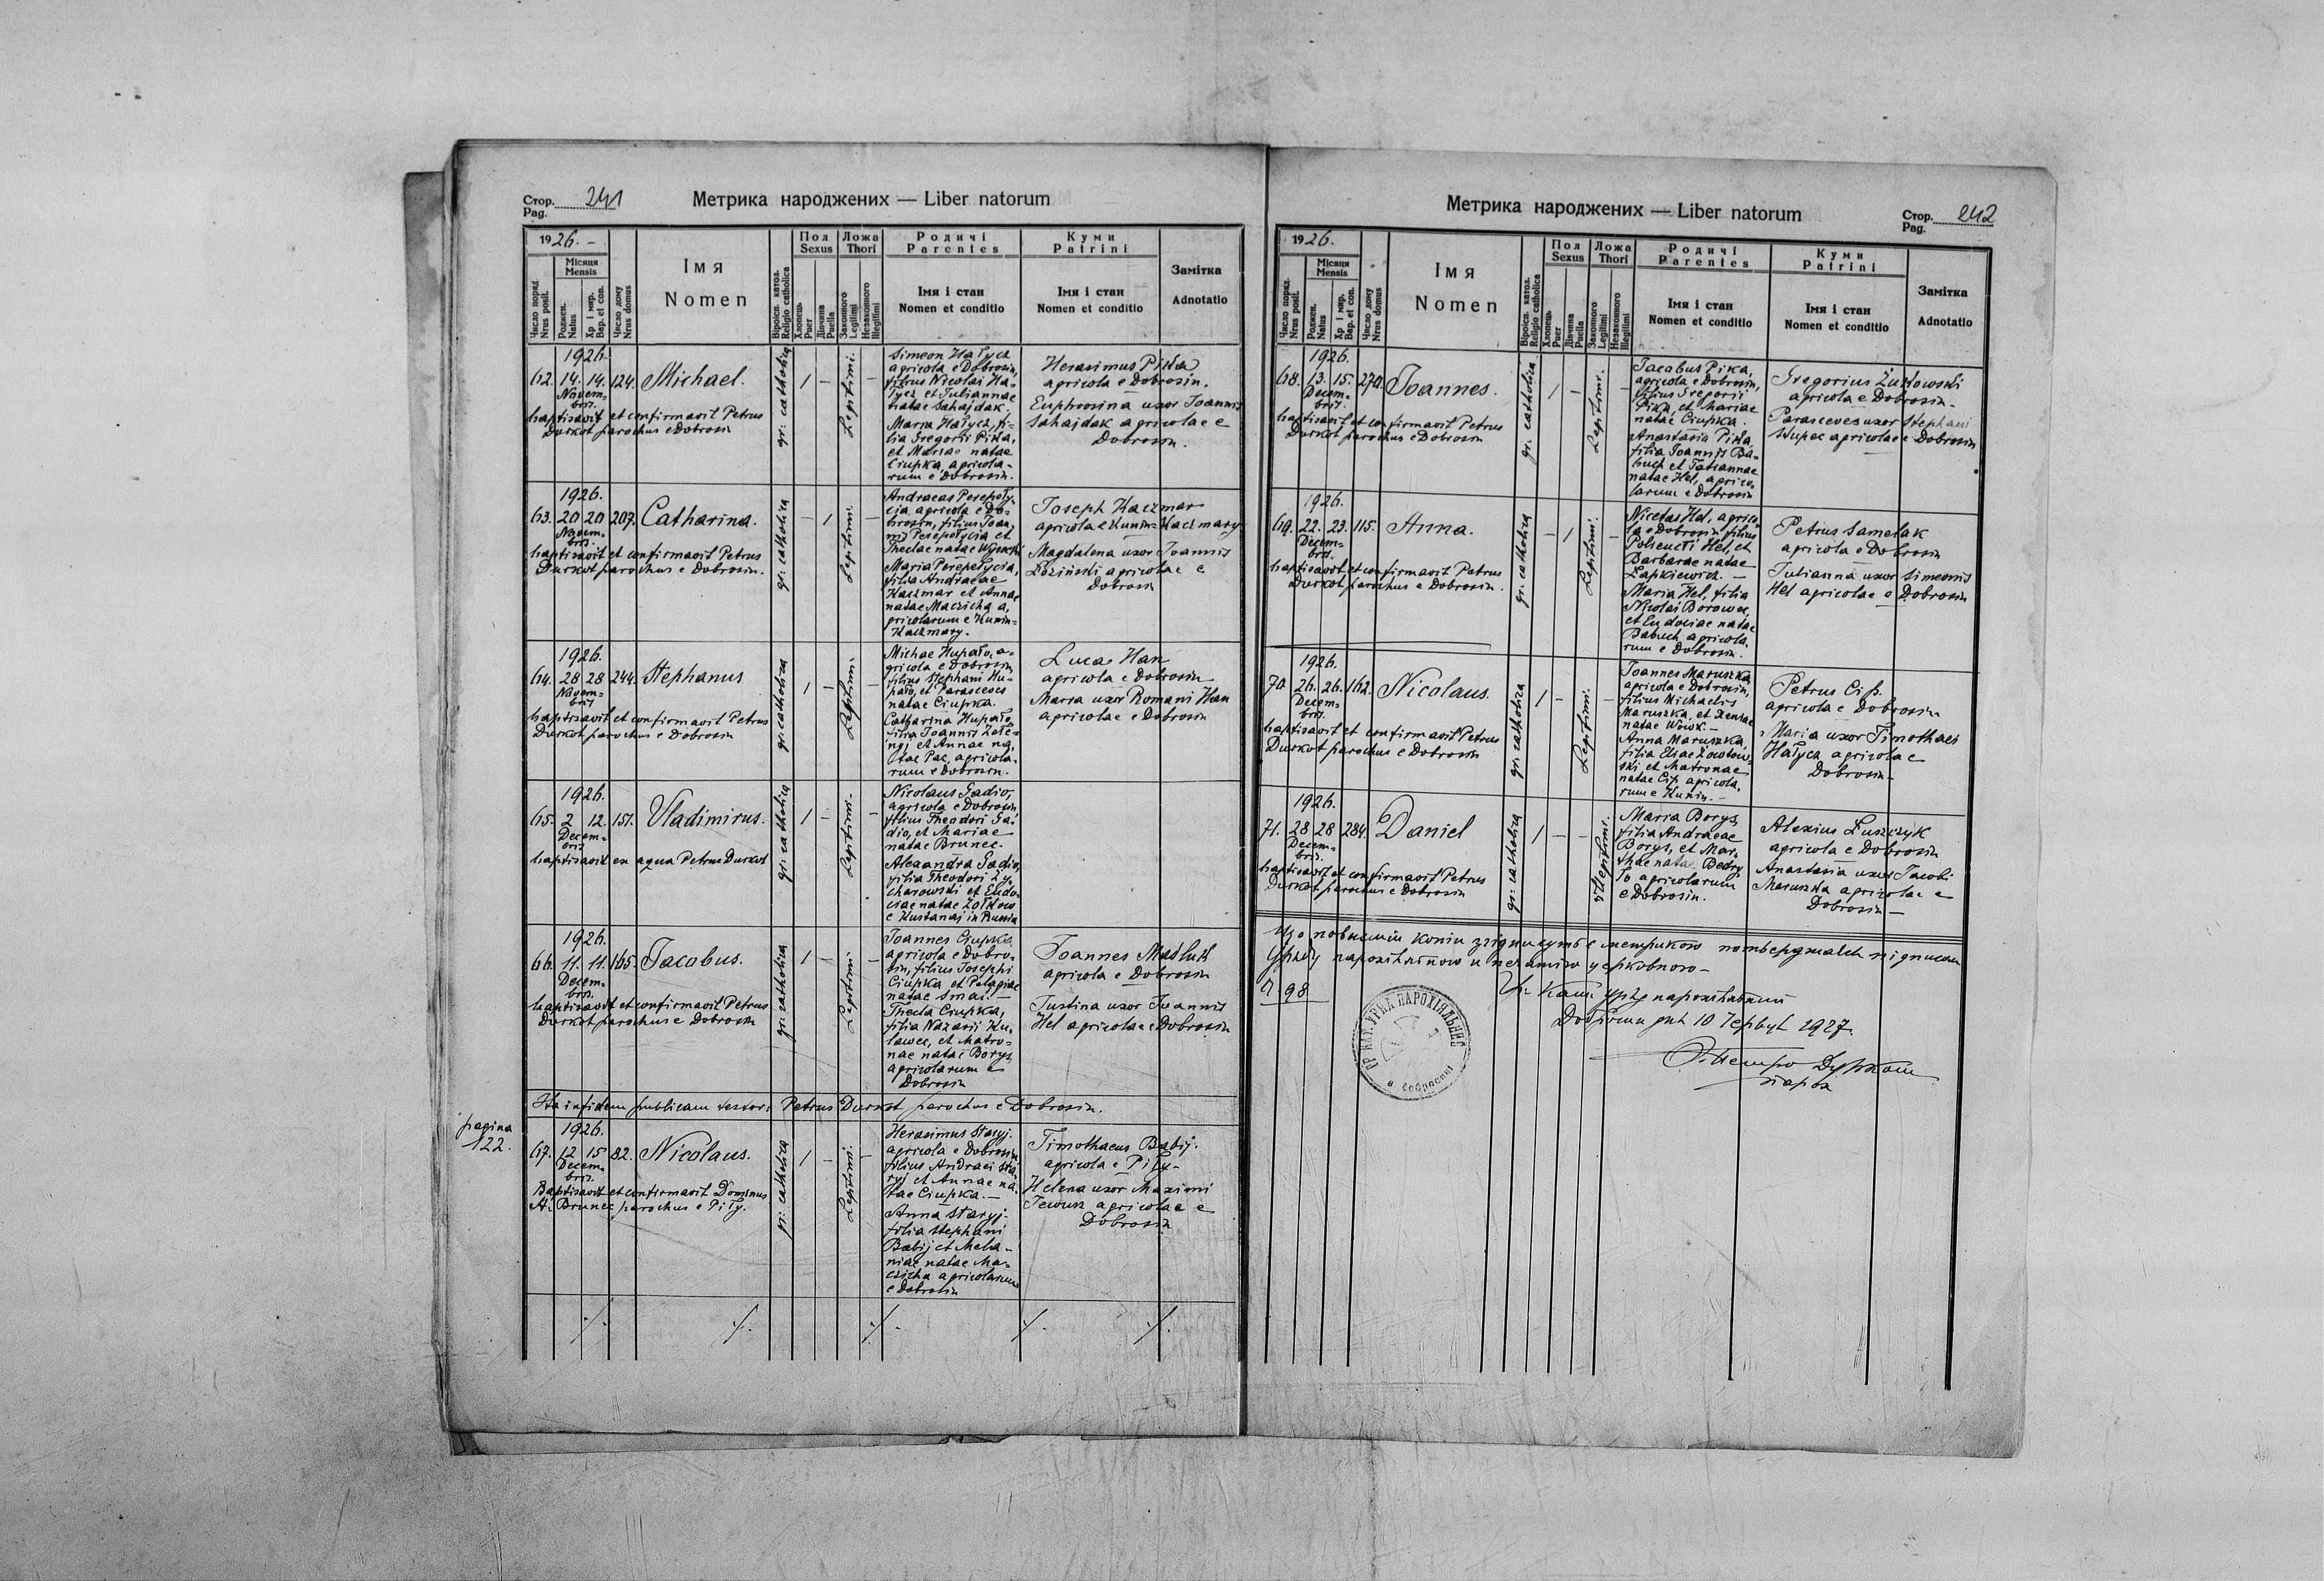 Стор. 241
Pag.
Метрика народжених — Liber natorum
1926. –
Місяця
Mensis
Число поряд.
Nrus posit.
Роджен.
Natus
Хр. і мир.
Bap. et con.
Число дому
Nrus domus
Імя
Nomen
Віроісп. катол.
Religio catholica
Пол
Sexus
Хлопець
Puer
Дівчина
Puella
Ложа
Thori
Законного
Legitimi
Незаконного
Illegitimi
Родичі
Parentes
Імя і стан
Nomen et conditio
Куми
Patrini
Імя і стан
Nomen et conditio
Замітка
Adnotatio
1926.
62. 14. 14. 124. Michael.
Novem=
bris.
baptisavit et confirmavit Petrus
Durkot parochus e Dobrosin
gr: catholica
1 –
Legitimi. –
Simeon Hałycz
agricola e Dobrosin,
filius Nicolai Ha=
łycz et Juliannae
natae Sahajdak.
Maria Hałycz, fi=
lia Gregorii Pika,
et Mariae natae
Ciupka, agricola=
rum e Dobrosin.
Herasimus Pika
agricola e Dobrosin.
Euphrosina uxor Joannis
Sahajdak agricolae e
Dobrosin.
1926.
63. 20 20 207. Catharina.
Novem=
bris.
baptisavit et confirmavit Petrus
Durkot parochus e Dobrosin.
gr: catholica
– 1
Legitimi. –
Andraeas Perepeły=
cia, agricola e Do=
brosin, filius Joan=
nis Perepełycia et
Theclae natae Wysocki
Maria Perepełycia,
filia Andraeae
Kaczmar et Annae
natae Maczicha a,
gricolarum e Kunin=
Kaczmary.
Joseph Kaczmar
agricola e Kunin=Kaczmary
Magdalena uxor Joannis
Łoziński agricolae e
Dobrosin
1926.
64. 28 28 244. Stephanus
Novem=
bris
baptisavit et confirmavit Petrus
Durkot parochus e Dobrosin
gr: catholica
1 –
Legitimi. –
Michae Hupało, a=
gricola e Dobrosin,
filius Stephani Hu=
pało, et Parasceves
natae Ciupka.
Catharina Hupało,
filia Joannis
et Annae na,
tae Pac, agricola,
rum e Dobrosin.
Lucas Han
agricola e Dobrosin
Maria uxor Romani Han
agricolae e Dobrosin
1926.
65. 2 12. 151. Vladimirus.
Decem=
bris
baptisavit ex aqua Petrus Durkot
gr: catholica
1 –
Legitimi. –
Nicolaus Gadio,
agricola e Dobrosin
filius Theodori Ga=
dio, et Mariae
natae Brunec.
Alexandra Gadio,
filia Theodori Ly,
charowski et Eudo=
ciae natae
e Kustanaj in Russia
1926.
66. 11. 11. 165. Jacobus.
Decem=
bris.
baptisavit et confirmavit Petrus
Durkot parochus e Dobrosin
gr: catholica
1 –
Legitimi. –
Joannes Ciupka
agricola e Dobro=
sin, filius Josephi
Ciupka et Pelagiae
natae Smal. –
Thecla Ciupka,
filia Nazarii Ku,
lawec, et Matro=
nae natae Borys,
agricolarum e
Dobrosin
Joannes Masluk
agricola e Dobrosin
Justina uxor Joannis
Hel agricolae e Dobrosin
Ita in fidem publicam testor: Petrus Durkot parochus e Dobrosin.
pagina
122.
1926.
67. 12 15 82. Nicolaus.
Decem=
bris.
Baptisavit et confirmavit Dominus
A. Brunec parochus e Piły.
gr: catholica
1 –
Legitimi. –
Herasimus Staryj.
agricola e Dobrosin,
filius Andraei Sta=
ryj et Annae na,
tae Ciupka. –
Anna Staryj.
filia Stephani
Babij et Mela=
niae natae Ma=
czicha agricolarum
e Dobrosin
Timothaeus Babij.
agricola e Piły –
Helena uxor Maximi
agricolae e
Dobrosin
Метрика народжених — Liber natorum
Стор. 242
Pag.
1926.
Місяця
Mensis
Число поряд.
Nrus posit.
Роджен.
Natus
Хр. і мир.
Bap. et con.
Число дому
Nrus domus
Імя
Nomen
Віроісп. катол.
Religio catholica
Пол
Sexus
Хлопець
Puer
Дівчина
Puella
Ложа
Thori
Законного
Legitimi
Незаконного
Illegitimi
Родичі
Parentes
Імя і стан
Nomen et conditio
Куми
Patrini
Імя і стан
Nomen et conditio
Замітка
Adnotatio
1926.
68. 13. 15. 270. Joannes.
Decem=
bris.
baptisavit et confirmavit Petrus
Durkot parochus e Dobrosin
gr: catholica
1 –
Legitimi. –
Jacobus Pika,
agricola e Dobrosin,
filius Gregorii
Pika, et Mariae
natae Ciupka.
Anastasia Pika,
filia Joannis Ba=
buch et Tatiannae
natae Hel, agrico=
larum e Dobrosin
Gregorius
agricola e Dobrosin.
Parasceves uxor Stephani
agricolae e Dobrosin
1926.
69. 22. 23. 115. Anna.
Decem=
bris.
baptisavit et confirmavit Petrus
Durkot parochus e Dobrosin.
gr: catholica
– 1
Legitimi. –
Nicetas Hel, agrico,
la e Dobrosin filius
Polieucti Hel, et
Barbarae natae
Łapkiewicz. –
Maria Hel, filia
Nicolai Borowec,
et Eudociae natae
Babuch, agricola,
rum e Dobrosin.
Petrus Samelak
agricola e Dobrosin
Julianna uxor Simeonis
Hel agricolae e Dobrosin
1926.
70. 26. 26. 162. Nicolaus.
Decem=
bris.
baptisavit et confirmavit Petrus
Durkot parochus e Dobrosin
gr: catholica
1 –
Legitimi. –
Joannes Maruszka,
agricola e Dobrosin,
filius Michaelis
Maruszka, et Xeniae
natae Wowk. –
Anna Maruszka,
filia Eliae
et Matronae
natae Cip, agricola,
rum e Kunin. –
Petrus Cip.
agricola e Dobrosin
Maria uxor Timothaei
Hałycz agricolae
Dobrosin –
1926.
71. 28 28 284. Daniel
Decem=
bris.
baptisavit et confirmavit Petrus
Durkot parochus e Dobrosin
gr: catholica
1 –
– illegitimi.
Maria Borys,
filia Andraeae
Borys, et Mar=
thae natae
agricolarum
e Dobrosin.
Alexius Łuszczyk
agricola e Dobrosin
Anastasia uxor Jacobi
Maruszka agricolae e
Dobrosin –
Що повисші копії згідні суть с метрикою потверджаєся підписом
Уряду парохіяльного и печатию церковною –
Ч. 98
Гр. Кат. уряд парохіяльний
Добросин дня 10 1927.
О. Петро Дуркот
парох
ГР. КАТ. УРЯД ПАРОХІЯЛЬНИЙ
в Добросині